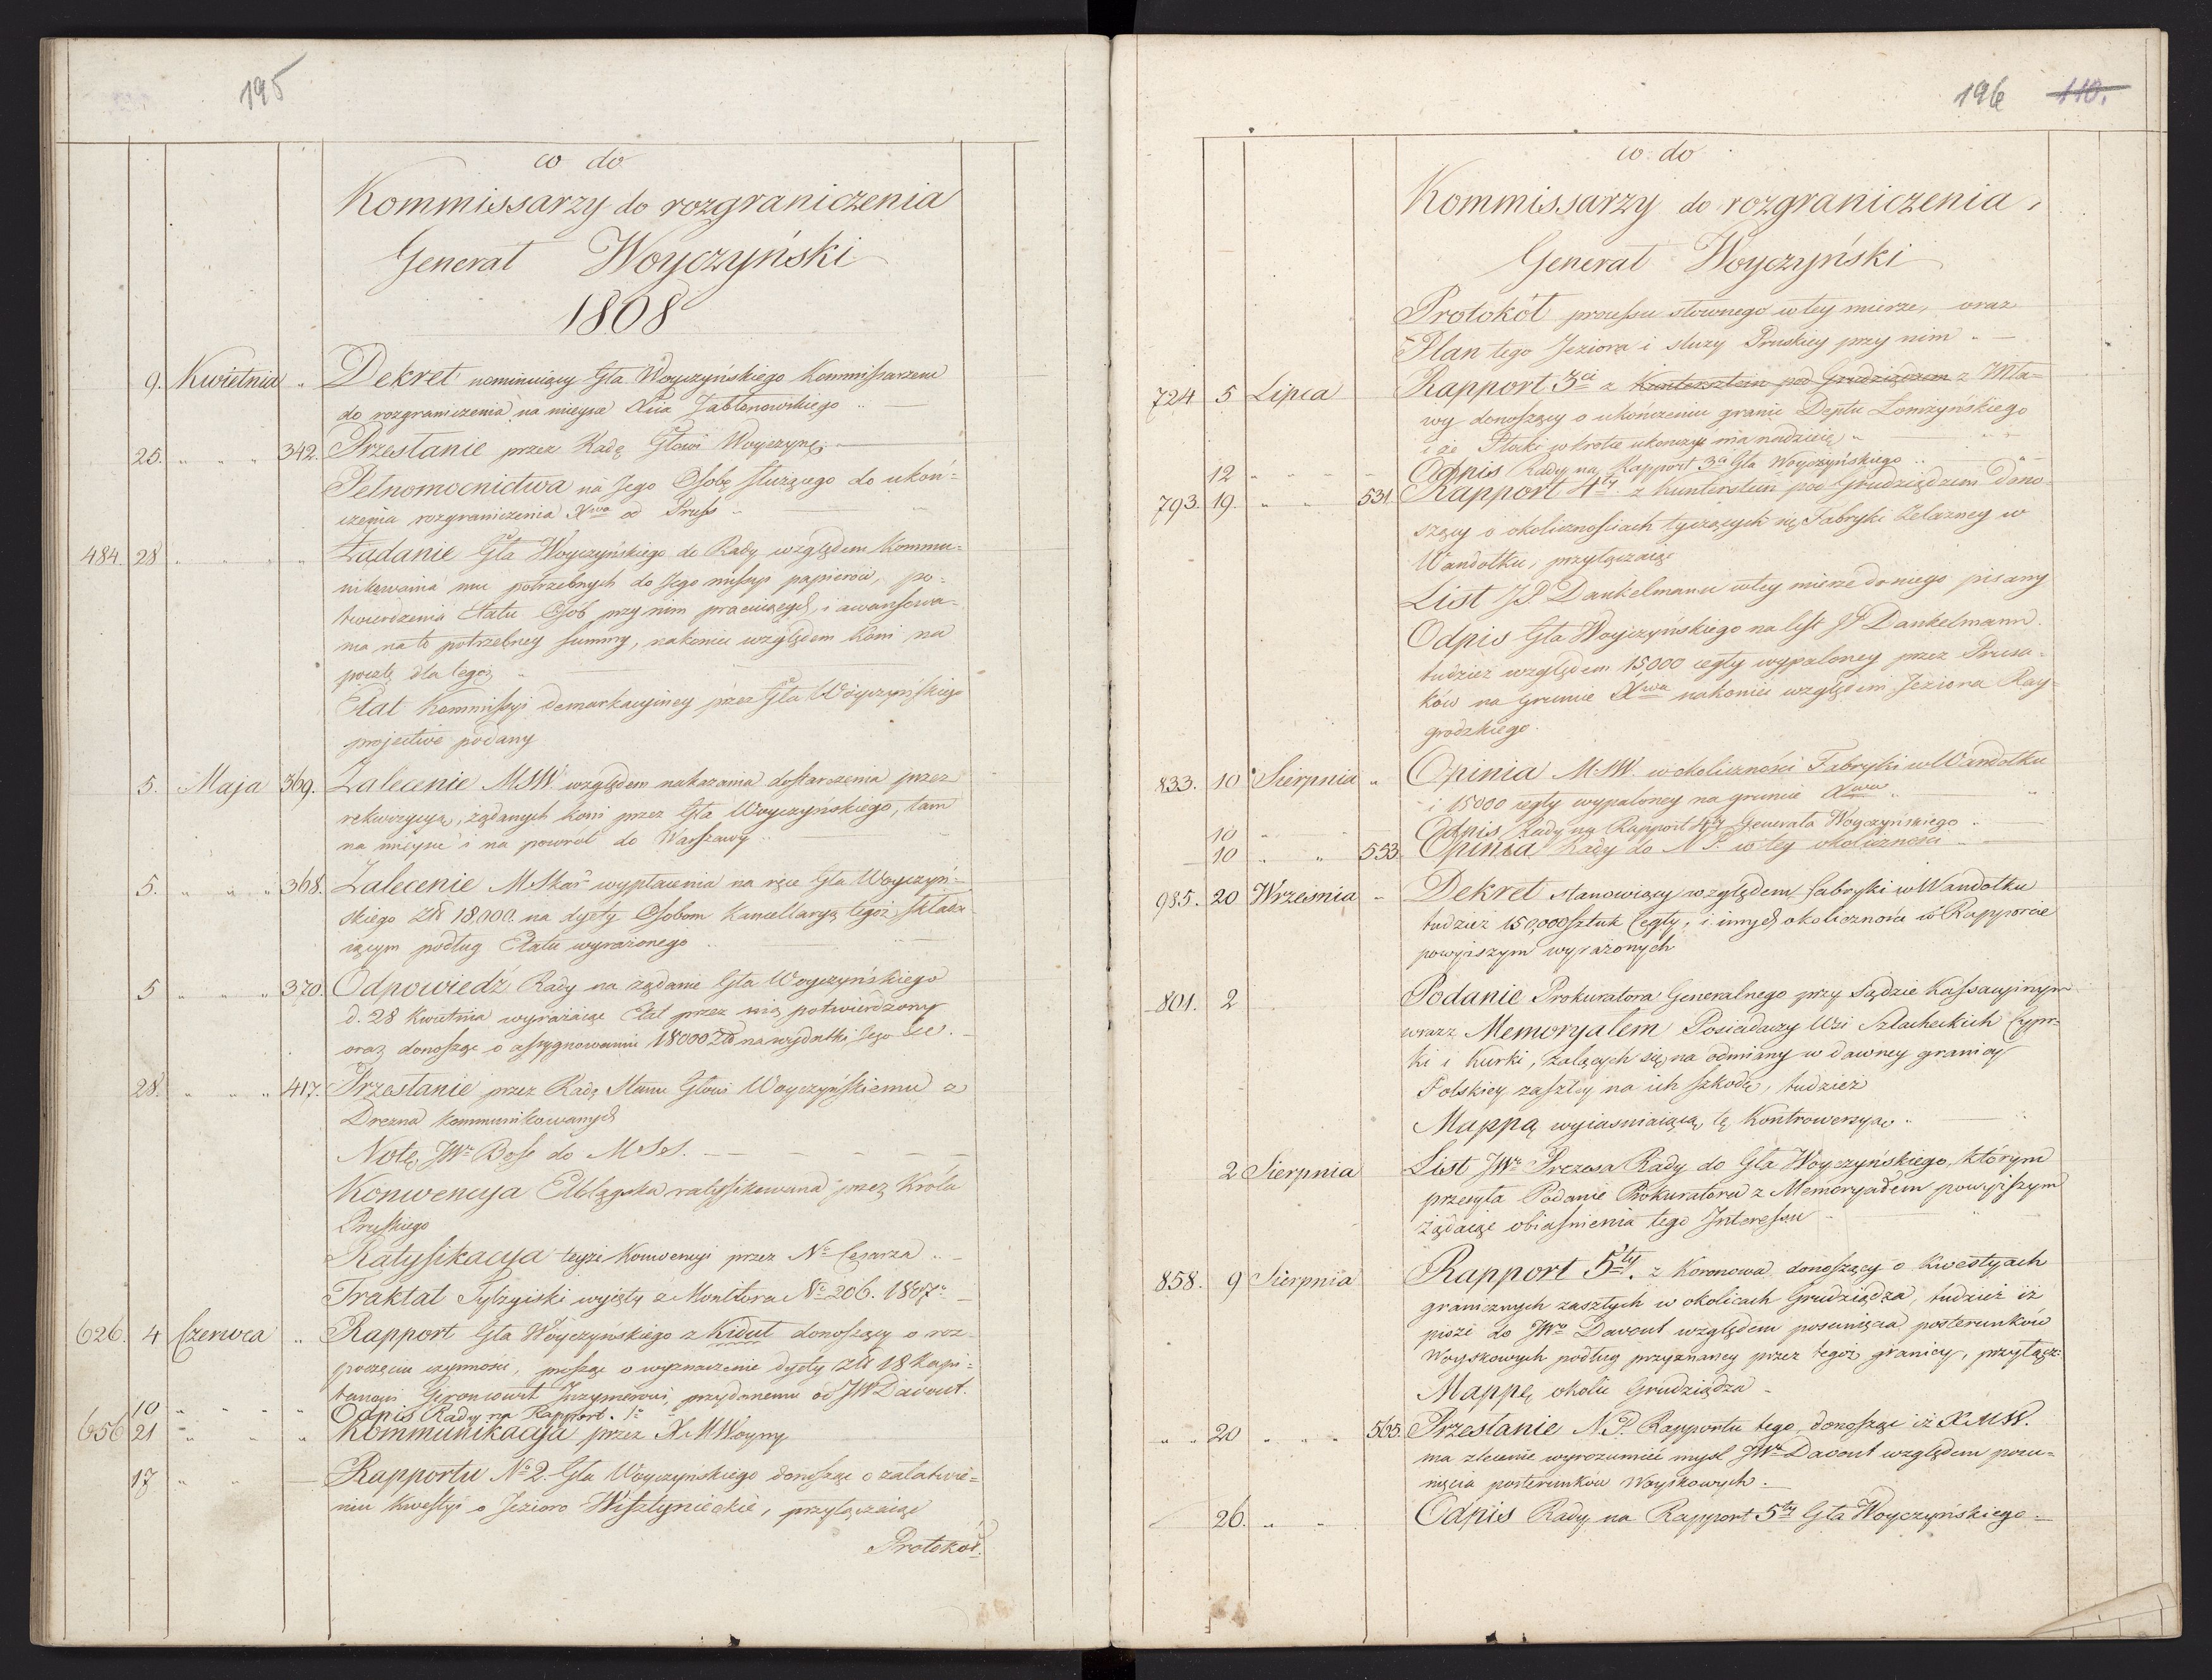 195
co do
Kommissarzy do rozgraniczenia
Generał Woyczyński
1808
9. Kwietnia „ Dekret nominuiący Gła Woyczyńskiego Kommissarzem
do rozgraniczenia na mieysce Xcia Jabłonowskiego „ —
25. „ „ „ 342. Przesłanie przez Radę Głowi Woyczyń: —
Pełnomocnictwa na Jego Osobę służącego do ukoń-
czenia rozgraniczenia Xwa od Pruss „
484. 28 „ „ „ Żądanie Gła Woyczyńskiego do Rady względem Kommu-
nikowania mu potrzebnych do Jego missyi papierów, po-
twierdzenia Etatu Osób przy nim pracuiących, i awansowa-
nia na to potrzebney summy, nakoniec względem Koni na
pocztę dla tegoż „
Etat Kommissyi demarkacyiney przez Gła Woyczyńskiego
projective podany
5. Maja 369. Zalecenie MSW. względem nakazania dostarczenia przez
rekwizycyą, żądanych koni przez Gła Woyczyńskiego, tam
na mieysce i na powrót do Warszawy
5. „ „ „ 368. Zalecenie MSkar wypłacenia na ręce Gła Woyczyń-
skiego Zł 18,000. na dyety Osobom Kancellaryą tegoż składa-
iącym podług Etatu wyrażonego „
5 „ „ „ 370. Odpowiedź Rady na żądanie Gła Woyczyńskiego
d. 28 Kwietnia wyrażaiąc Etat przez nią potwierdzony
oraz donosząc o assygnowaniu 18000 Zł na wydatki Jego
28. „ „ „ 417. Przesłanie przez Radę Stanu Głowi Woyczyńskiemu z
Drezna kommunikowanych
Notę JWo Bose do MSS. — — — — —
Konwencya Elblągska ratyfikowana przez Króla
Pruskiego
Ratyfikacya teyże Konwencyi przez No Cesarza „ —
Traktat Tylzyiski wyięty z Monitora No 206. 1807r —
626. 4 Czerwca „ Rapport Gła Woyczyńskiego z Kidul donoszący o roz-
poczęciu czynności, prosząc o wyznaczenie dyety Zł 18 Kapi-
tanowi Geroncourt Inzynierowi, przydanemu od JW Davout.
10 „ „ „ „ Odpis Rady na Rapport. 1o
656 21 „ „ „ „ Kommunikacya przez XMWoyny
17 „ „ — Rapportu No 2. Gła Woyczyńskiego donosząc o załatwie-
niu kwestyi o Jezioro Wisztynieckie, przyłączaiąc
Protokoł.
196 110.
co do
Kommissarzy do rozgraniczenia,
Generał Woyczyński
Protokół processu słownego w tey mierze, oraz
Plan tego Jeziora i śluzy Pruskiey przy nim „ —
724 5 Lipca Rapport 3ci z Kuntersztein pod Grudziądzem z Mła-
wy donoszący o ukończeniu granic Deptu Łomżyńskiego
i że Płocki wkrotce ukończyć ma nadzieię „
12 „ „ Odpis Rady na Rapport 3ci Gła Woyczyńskiego „
793. 19. „ „ 531. Rapport 4ty z Kunterstein pod Grudziądzem dono-
szący o okolicznościach tyczących się Fabryki żelazney w
Wandołku, przyłączaiąc
List JP. Dankelmann w tey mierze do niego pisany
Odpis Gła Woyczyńskiego na list JP Dankelmann.
tudzież względem 15,000 cegły wypaloney przez Prusa-
ków na gruncie Xwa nakoniec względem Jeziora Ray-
grodzkiego.
833. 10 Sierpnia „ Opinia MSW. w okoliczności Fabryki w Wandołku
i 15000 cegły wypaloney na gruncie Xwa „
10 „ „ Odpis Rady na Rapport 4ty Generała Woyczyńskiego „
10 „ „ 553. Opinia Rady do NP. w tey okoliczności „
985. 20 Września „ Dekret stanowiący względem fabryki w Wandołku
tudzież 150,000 sztuk cegły, i innych okoliczności w Rapporcie
powyższym wyrażonych
801. 2 Podanie Prokuratora Generalnego przy Sądzie Kassacyinym
wraz z Memoryałem Posiadaczy Wsi Szlacheckich Cypr-
ki i Kurki, żalących się na odmiany w dawney granicy
Polskiey zaszłey na ich szkodę, tudzież
Mappą wyiaśniaiącą tę Kontrowersyą „
2 Sierpnia List JWo Prezesa Rady do Gła Woyczyńskiego, którym
przesyła Podanie Prokuratora z Memoryałem powyższym
żądaiąc obiaśnienia tego Interessu —
858. 9 Sierpnia Rapport 5ty. z Koronowa donoszący o Kwestyach
granicznych zaszłych w okolicach Grudziądza, tudzież iż
pisze do JWo Davout względem posunięcia posterunków
Woyskowych podług przyznaney przez tegoż granicy, przyłącz:
Mappę okolic Grudziądza —
„ „ 20 „ „ „ 565. Przesłanie N.P. Rapportu tego, donosząc iż XMW.
ma zlecenie wyrozumieć myśl JWo Davout względem posu-
nięcia posterunków Woyskowych.
26. „ „ Odpis Rady na Rapport 5ty Gła Woyczyńskiego. —